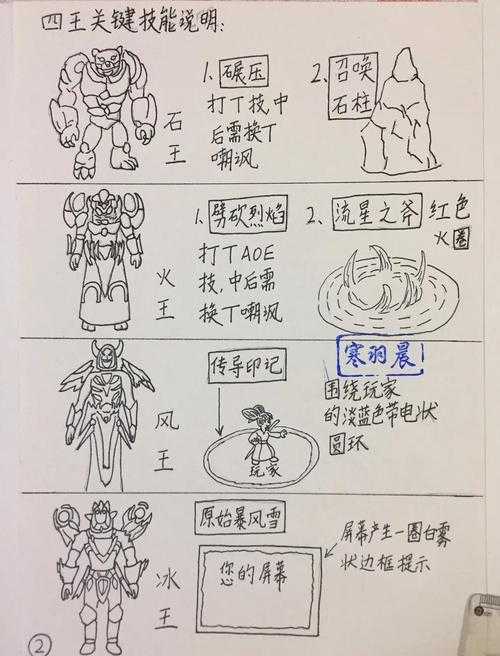 四王关键技能说明:
石王
1. 碾压
打T技,中
后需换T
嘲讽
2. 召唤
石柱
火王
1. 劈砍烈焰
打T AOE
技,中后需
换T嘲讽
2. 流星之斧 红色
火圈
风王
传导印记
玩家
寒羽晨
围绕玩家
的淡蓝色带电状
圆环
冰王
原始暴风雪
您的屏幕
屏幕产生一圈白雾
状边框提示
2